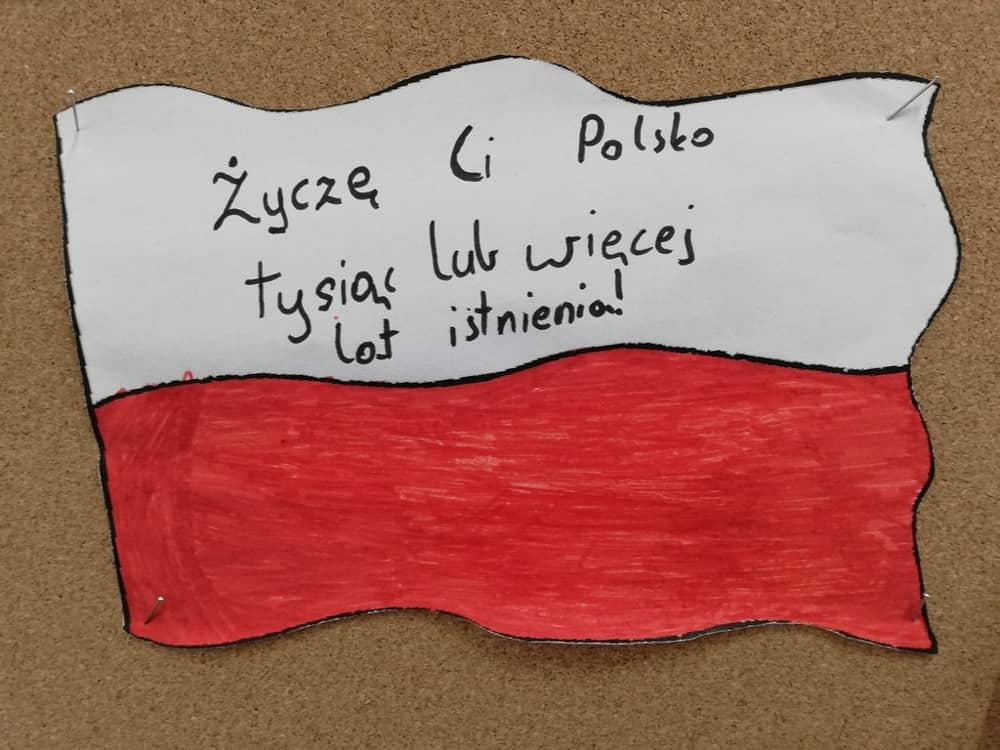 Życzę Ci Polsko
tysiąc lub więcej
lat istnienia!